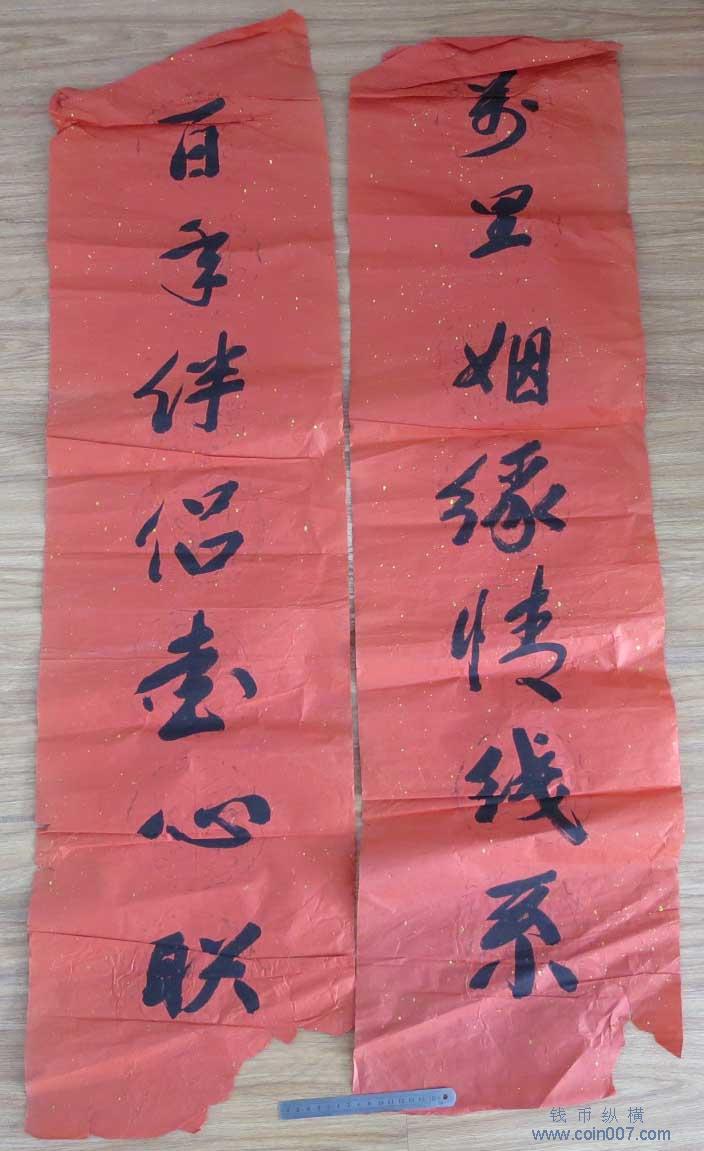 萬里姻缘情线系
百年伴侣爱心联
钱币纵横
www.coin007.com